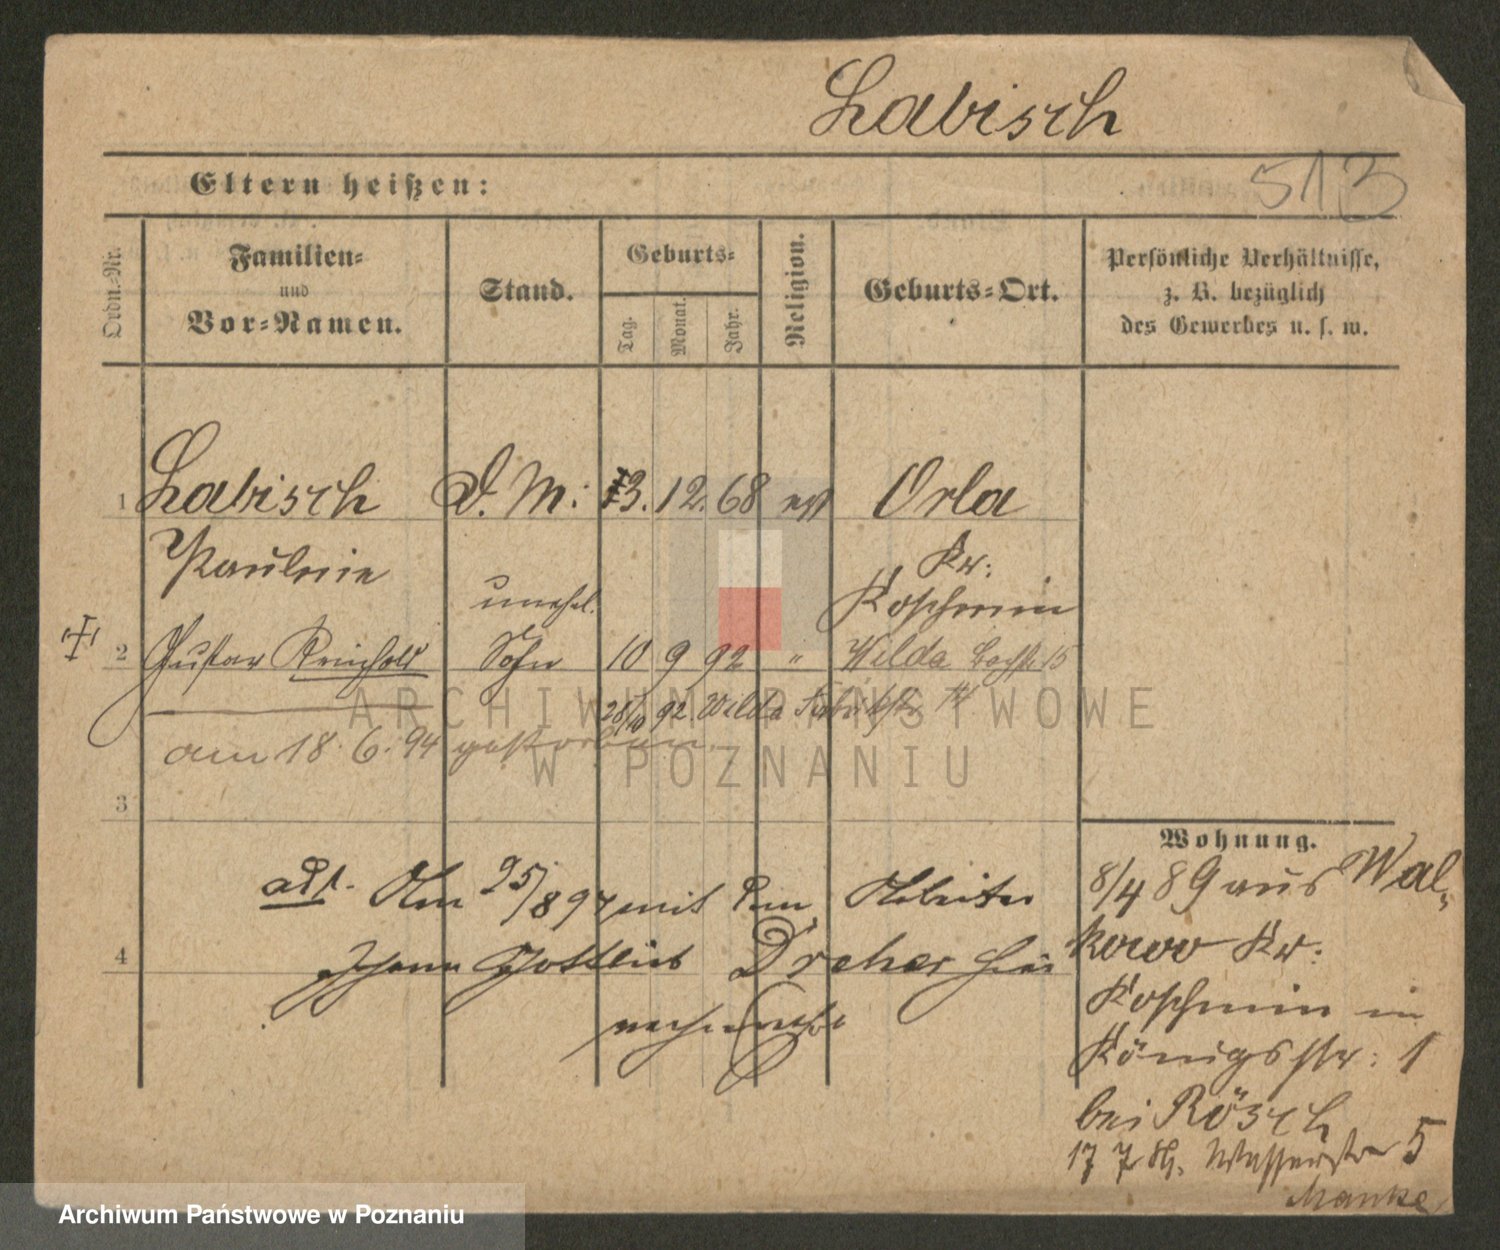 Labisch
513
Eltern heißen:
Ordn.-Nr.
Familien-
und
Vor-Namen.
Stand.
Geburts-
Tag.
Monat.
Jahr.
Religion.
Geburts-Ort.
Persönliche Verhältnisse,
z. B. bezüglich
des Gewerbes u. s. w.
1 Labisch D. M. 13. 12. 68 ev Orla
Pauline Kr.
Koschmin
unehel.
2 Gustav Reinhold Sohn 10 9 92 " Wilda 15
28/10 92 Wilda 14
am 18. 6. 94 gestorben.
3
4
Am 25/8 97 mit dem Arbeiter
Johann Gottlieb Dreher hier
Wohnung.
8/4 89 aus Wal-
kowo Kr.
Koschmin in
Königsstr. 1
bei Rösch
17 7 Wasserstr 5
Manke
ARCHIWUM PAŃSTWOWE
W POZNANIU
Archiwum Państwowe w Poznaniu